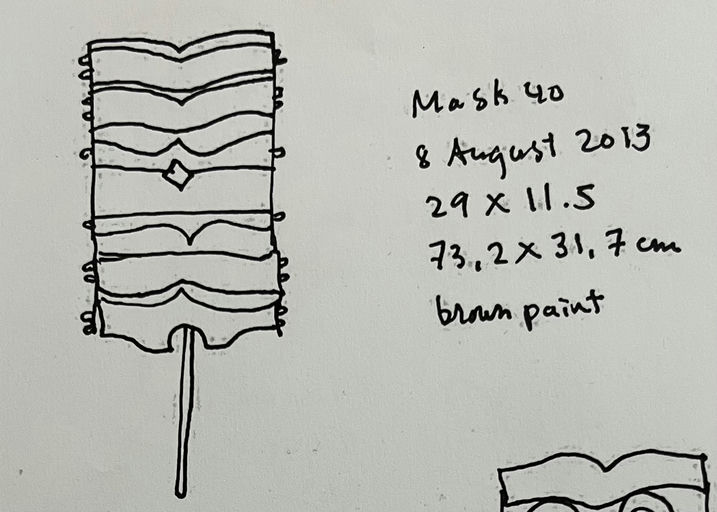 Mask 40
8 August 2013
29 x 11.5
73,2 x 31,7 cm
brown paint